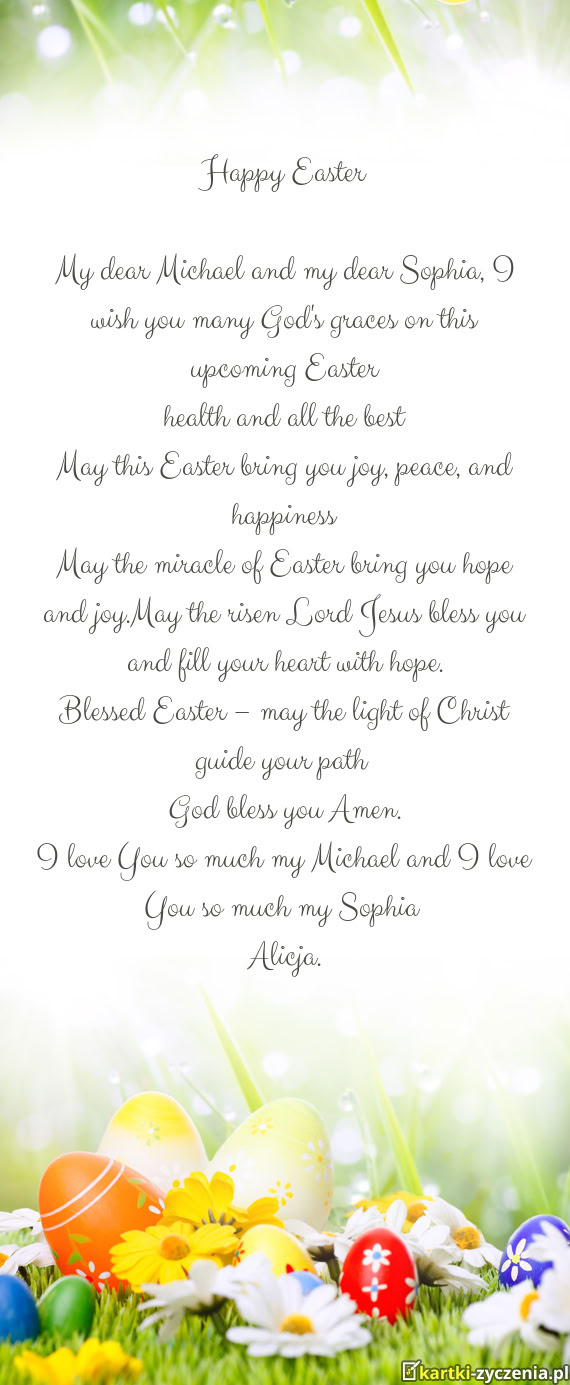 Happy Easter
My dear Michael and my dear Sophia, I
wish you many God's graces on this
upcoming Easter
health and all the best
May this Easter bring you joy, peace, and
happiness
May the miracle of Easter bring you hope
and joy.May the risen Lord Jesus bless you
and fill your heart with hope.
Blessed Easter – may the light of Christ
guide your path
God bless you Amen.
I love You so much my Michael and I love
You so much my Sophia
Alicja.
kartki-zyczenia.pl